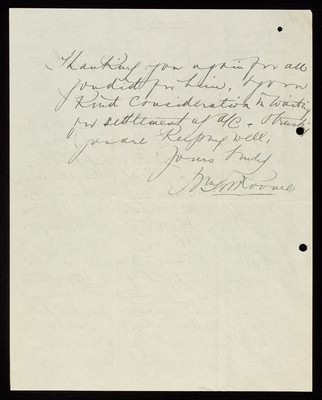 Thanking you again for all
you did for him, & your
kind consideration in waiting
for settlement of a/c - trust
you are keeping well,
Yours truly